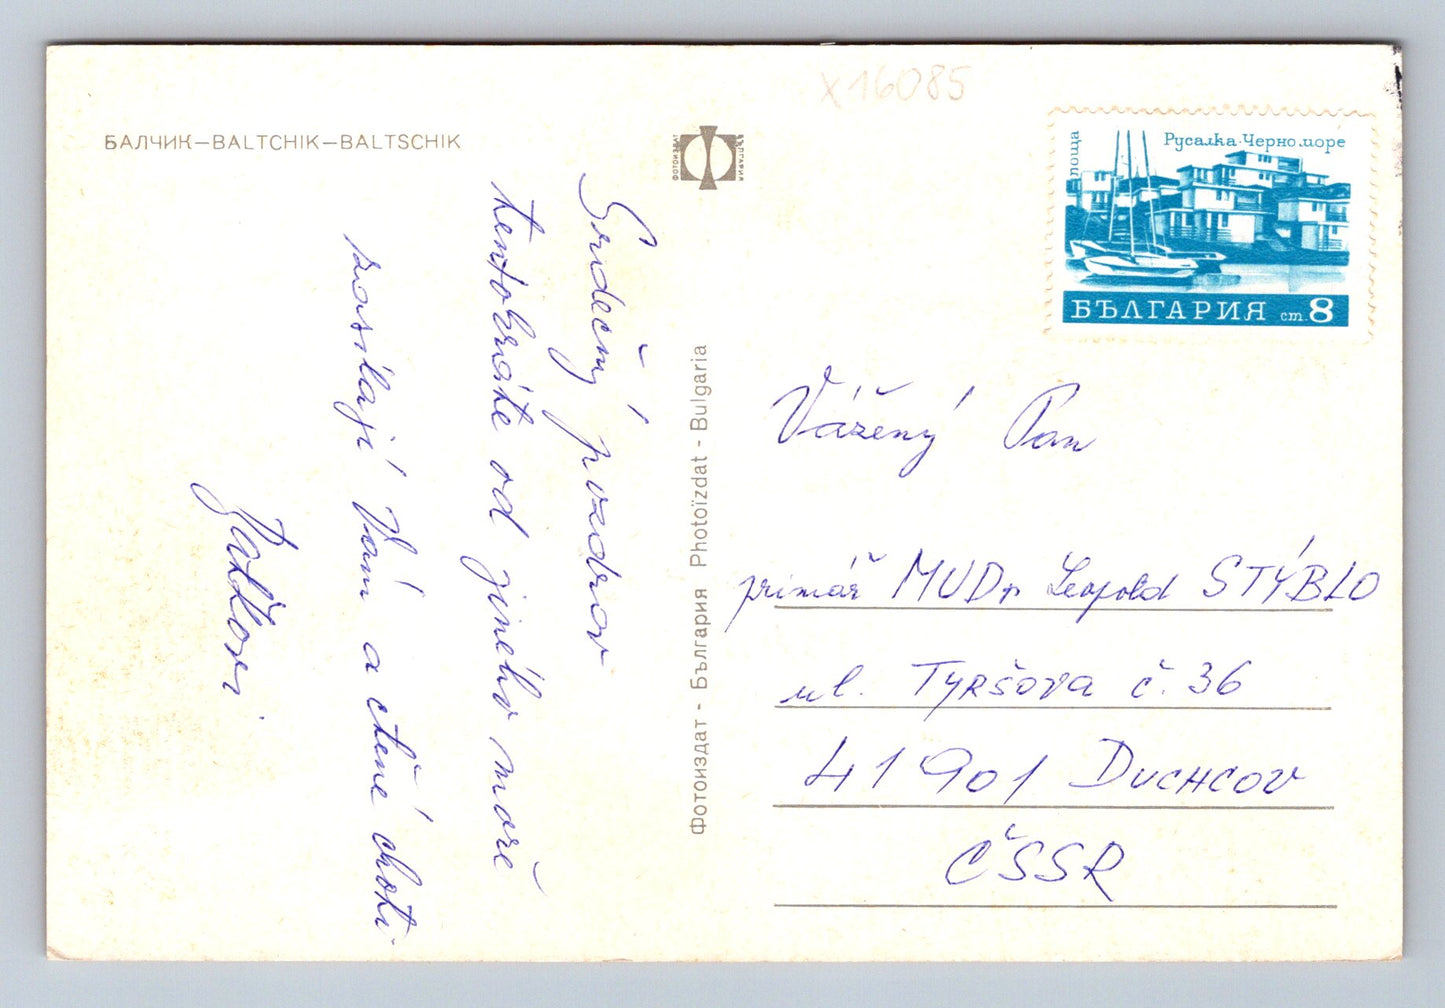 x16085
БАЛЧИК—BALTCHIK—BALTSCHIK
ФОТОИЗДАТ БЪЛГАРИЯ
поща
Русалка·Черно море
БЪЛГАРИЯ ст. 8
Srdečný pozdrav
tentokráte od jiného moře
zasílají Vám a ctěné choti.
Фотоиздат - България Photoïzdat - Bulgaria
Vážený Pan
primář MUDr Leopold STÝBLO
ul. TYRŠOVA č. 36
41901 DUCHCOV
ČSSR